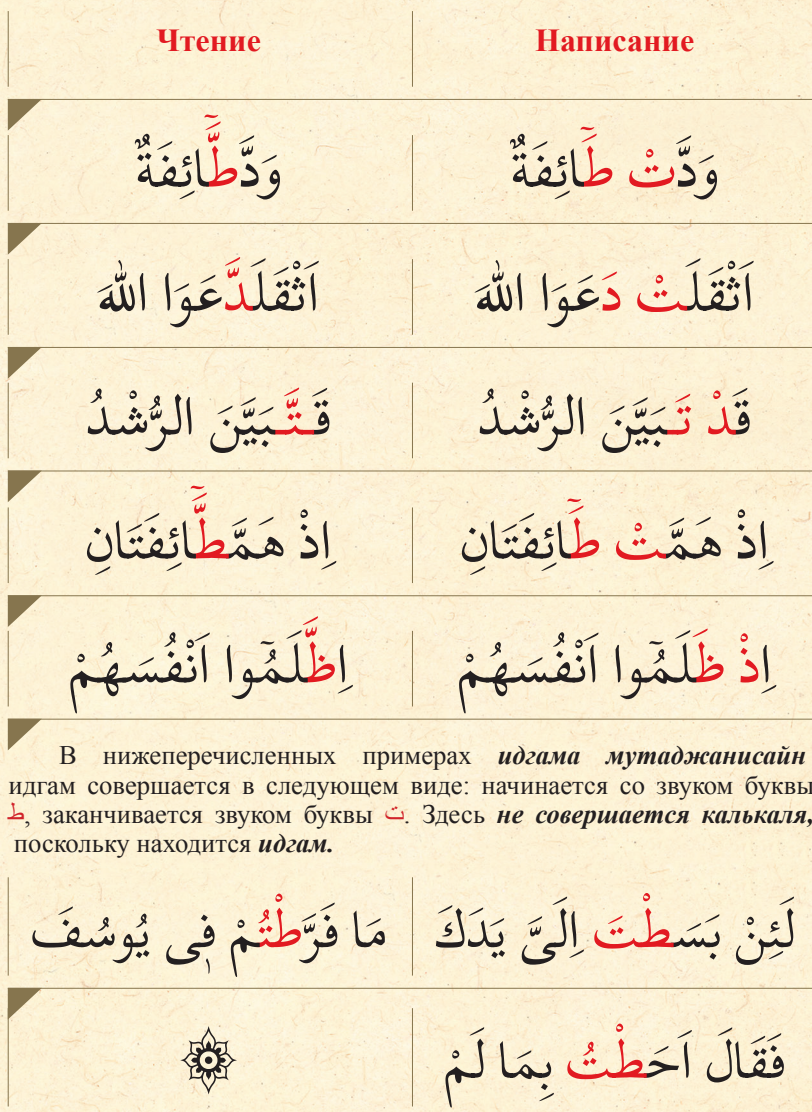 Чтение Написание
وَدَّطَّٓائِفَةٌ وَدَّتْ طَٓائِفَةٌ
اَثْقَلَدَّعَوَا اللّٰهَ اَثْقَلَتْ دَعَوَا اللّٰهَ
قَتَّبَيَّنَ الرُّشْدُ قَدْ تَبَيَّنَ الرُّشْدُ
اِذْ هَمَّطَّٓائِفَتَانِ اِذْ هَمَّتْ طَٓائِفَتَانِ
اِظَّلَمُٓوا اَنْفُسَهُمْ اِذْ ظَلَمُٓوا اَنْفُسَهُمْ
В нижеперечисленных примерах идгама мутаджанисайн
идгам совершается в следующем виде: начинается со звуком буквы
ط, заканчивается звуком буквы ت. Здесь не совершается калькаля,
поскольку находится идгам.
مَا فَرَّطْتُمْ فٖى يُوسُفَ لَئِنْ بَسَطْتَ اِلَىَّ يَدَكَ
فَقَالَ اَحَطْتُ بِمَا لَمْ